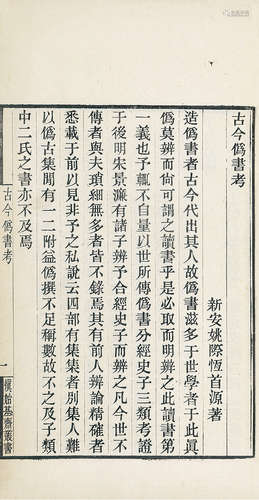 古今僞書考
新安姚際恆首源著
造僞書者古今代出其人故僞書滋多于世學者于此眞
僞莫辨而尚可謂之讀書乎是必取而明辨之此讀書第
一義也予輒不自量以世所傳僞書分經史子三類考證
于後明宋景濂有諸子辨予合經史子而辨之凡今世不
傳者與夫瑣細無多者皆不錄焉其有前人辨論精確者
悉載于前以見非予之私說云四部有集集者別集人難
以僞古集閒有一二附益僞撰不足稱數故不之及子類
中二氏之書亦不及焉
古今僞書考
一
愼始基齋叢書